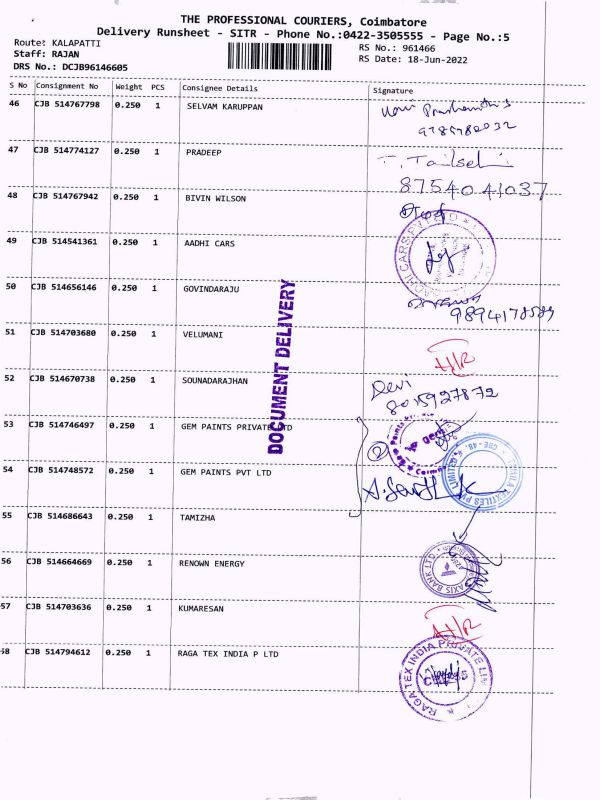 THE PROFESSIONAL COURIERS, Coimbatore
Delivery Runsheet - SITR - Phone No.:0422-3505555 - Page No.:5
Route: KALAPATTI
Staff: RAJAN
DRS No.: DCJB96146605
RS No.: 961466
RS Date: 18-Jun-2022
S No Consignment No Weight PCS Consignee Details Signature
46 CJB 514767798 0.250 1 SELVAM KARUPPAN
9786782032
47 CJB 514774127 0.250 1 PRADEEP
87540 41037
48 CJB 514767942 0.250 1 BIVIN WILSON
49 CJB 514541361 0.250 1 AADHI CARS
AADHI CARS PVT LTD
50 CJB 514656146 0.250 1 GOVINDARAJU
9894178589
51 CJB 514703680 0.250 1 VELUMANI
52 CJB 514670738 0.250 1 SOUNADARAJHAN
Devi
8015927872
53 CJB 514746497 0.250 1 GEM PAINTS PRIVATE LTD
54 CJB 514748572 0.250 1 GEM PAINTS PVT LTD
55 CJB 514686643 0.250 1 TAMIZHA
56 CJB 514664669 0.250 1 RENOWN ENERGY
AXIS BANK LTD
57 CJB 514703636 0.250 1 KUMARESAN
58 CJB 514794612 0.250 1 RAGA TEX INDIA P LTD
RAGA TEX INDIA PRIVATE LIMITED
DOCUMENT DELIVERY